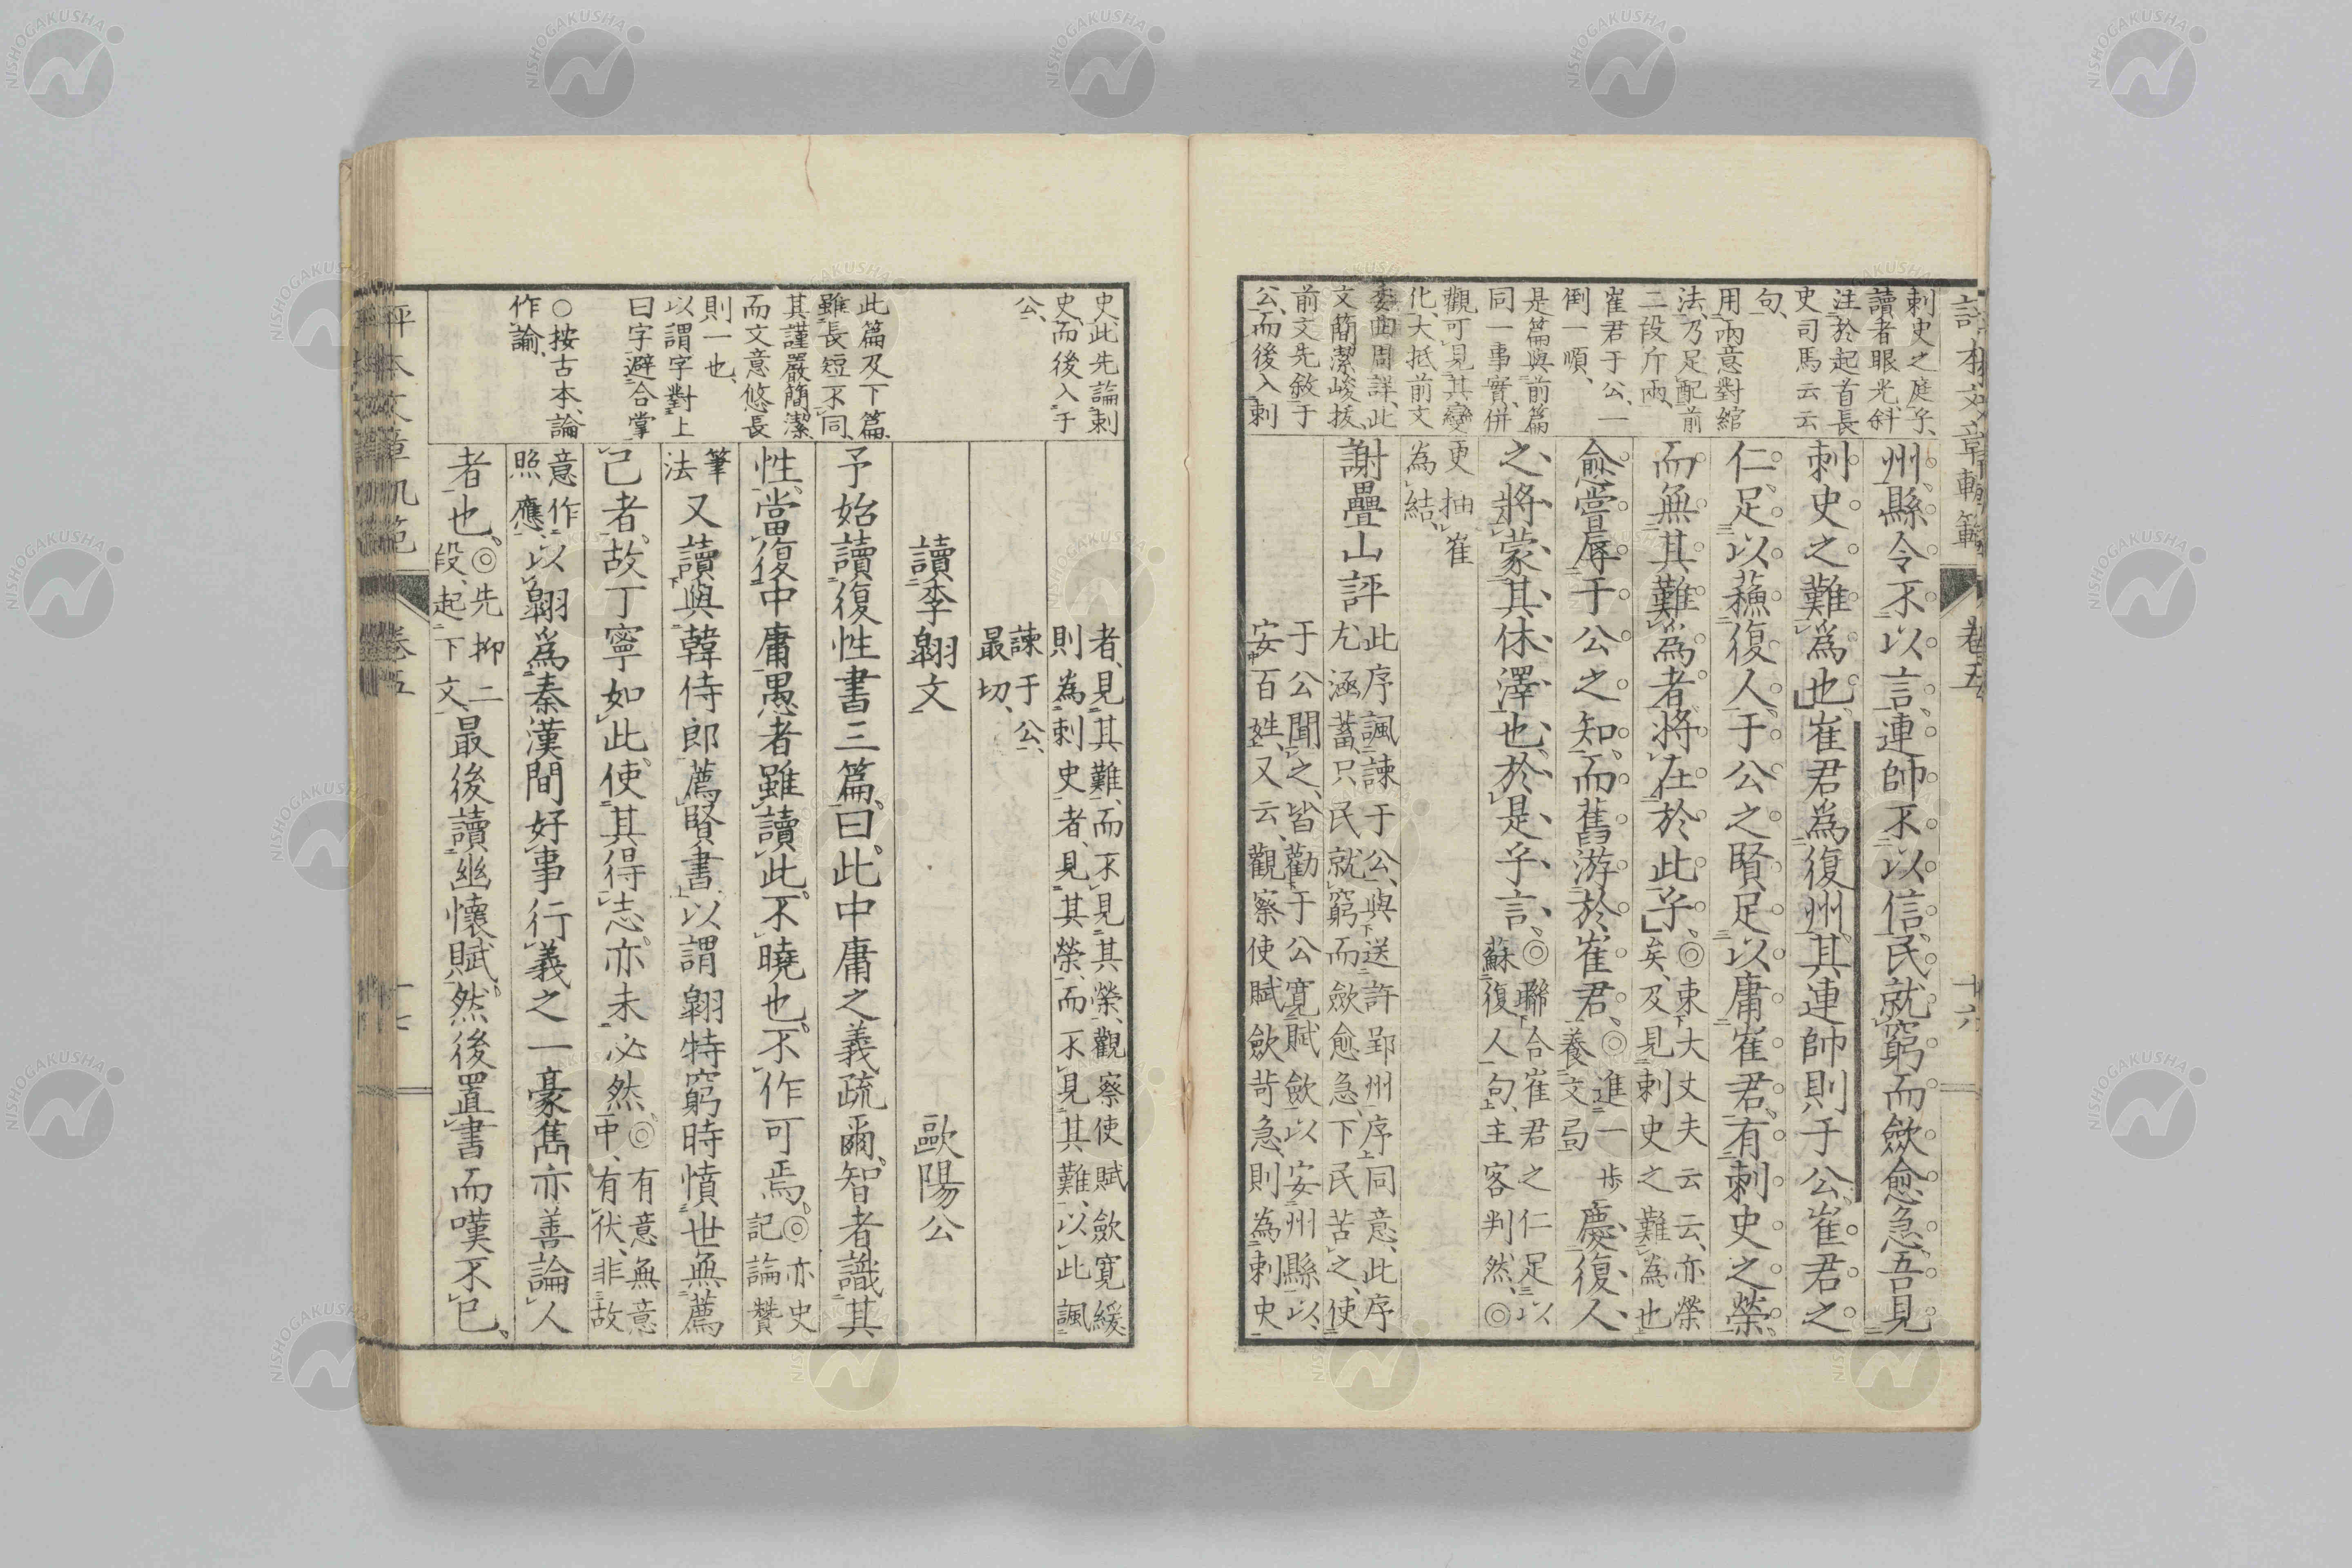 評本文章軌範
卷五
十六
刺史之庭子、
讀者眼光、斜
注於起首長
史司馬云云
句、
用兩意對綰
法、乃足配前
二段斤兩、
崔君于公、一
倒一順、
是篇與前篇
同一事實、併
觀可見其變
化、大抵前文
委曲周詳、此
文簡潔峻拔、
前文先敘于
公、而後入刺
州縣令不以言、連帥不以信、民就窮而斂愈急、吾見
刺史之難爲也、崔君爲復州、其連帥則于公、崔君之
仁、足以蘓復人、于公之賢、足以庸崔君、有刺史之榮
而無其難爲者、將在於此乎、◎束大丈夫云云、亦榮
矣、及見刺史之難為也
愈嘗辱于公之知、而舊游於崔君、◎進一步
養文局
慶復人
之將蒙其休澤也、於是乎言、◎聯合崔君之仁足以
蘇復人句、主客判然、◎
更抽崔
為結、
謝疊山評
此序諷諫于公、與送許郢州序同意、此序
尤涵蓄、只民就窮而斂愈急、下民苦之、使
于公聞之、皆勸于公寬賦斂以安州縣以
安百姓、又云、觀察使賦斂苛急、則為刺史
史、此先論刺
史、而後入于
公、
此篇及下篇
雖長短不同、
其謹嚴簡潔
而文意悠長
則一也、
以謂字對上
曰字避合掌
○按古本、論
作諭、
者、見其難、而不見其榮、觀察使賦斂寬緩
則為刺史者、見其榮、而不見其難、以此諷
諫于公、
最切、
讀李翱文
歐陽公
予始讀復性書三篇、曰、此中庸之義疏爾、智者識其
性、當復中庸、愚者雖讀此、不曉也、不作可焉、◎亦史
記論贊
筆
法
又讀與韓侍郎薦賢書、以謂翱特窮時憤世無薦
己者、故丁寧如此、使其得志、亦未必然、◎有意無意
中、有伏、非故
意作
照應、
以翱爲秦漢間好事行義之一豪雋、亦善論人
者也、◎先抑二
段、起下文、
最後讀幽懷賦、然後置書而嘆不已、
評本文章軌範
卷五
十七